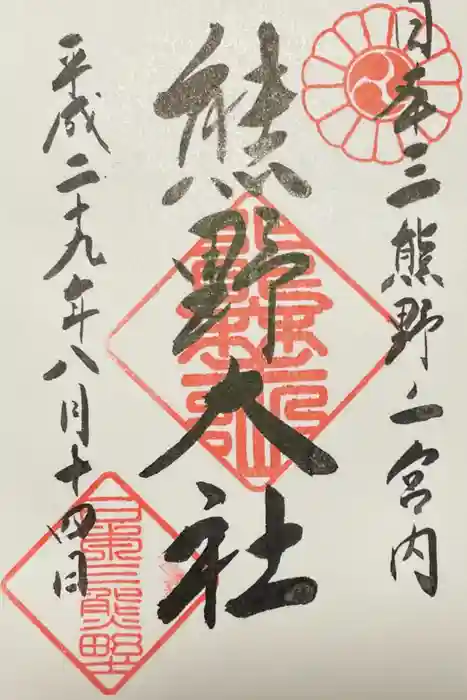 日本三熊野一宮内
熊野大社
平成二十九年八月十四日
日本三熊野